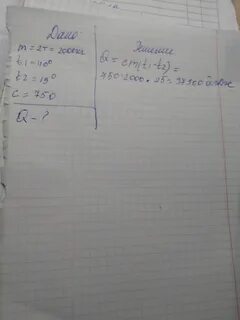 Дано:
m = 2т = 2000кг
t1 = 40°
t2 = 15°
c = 750
Q - ?
Решение
Q = cm(t1-t2) =
750·2000·25=37500